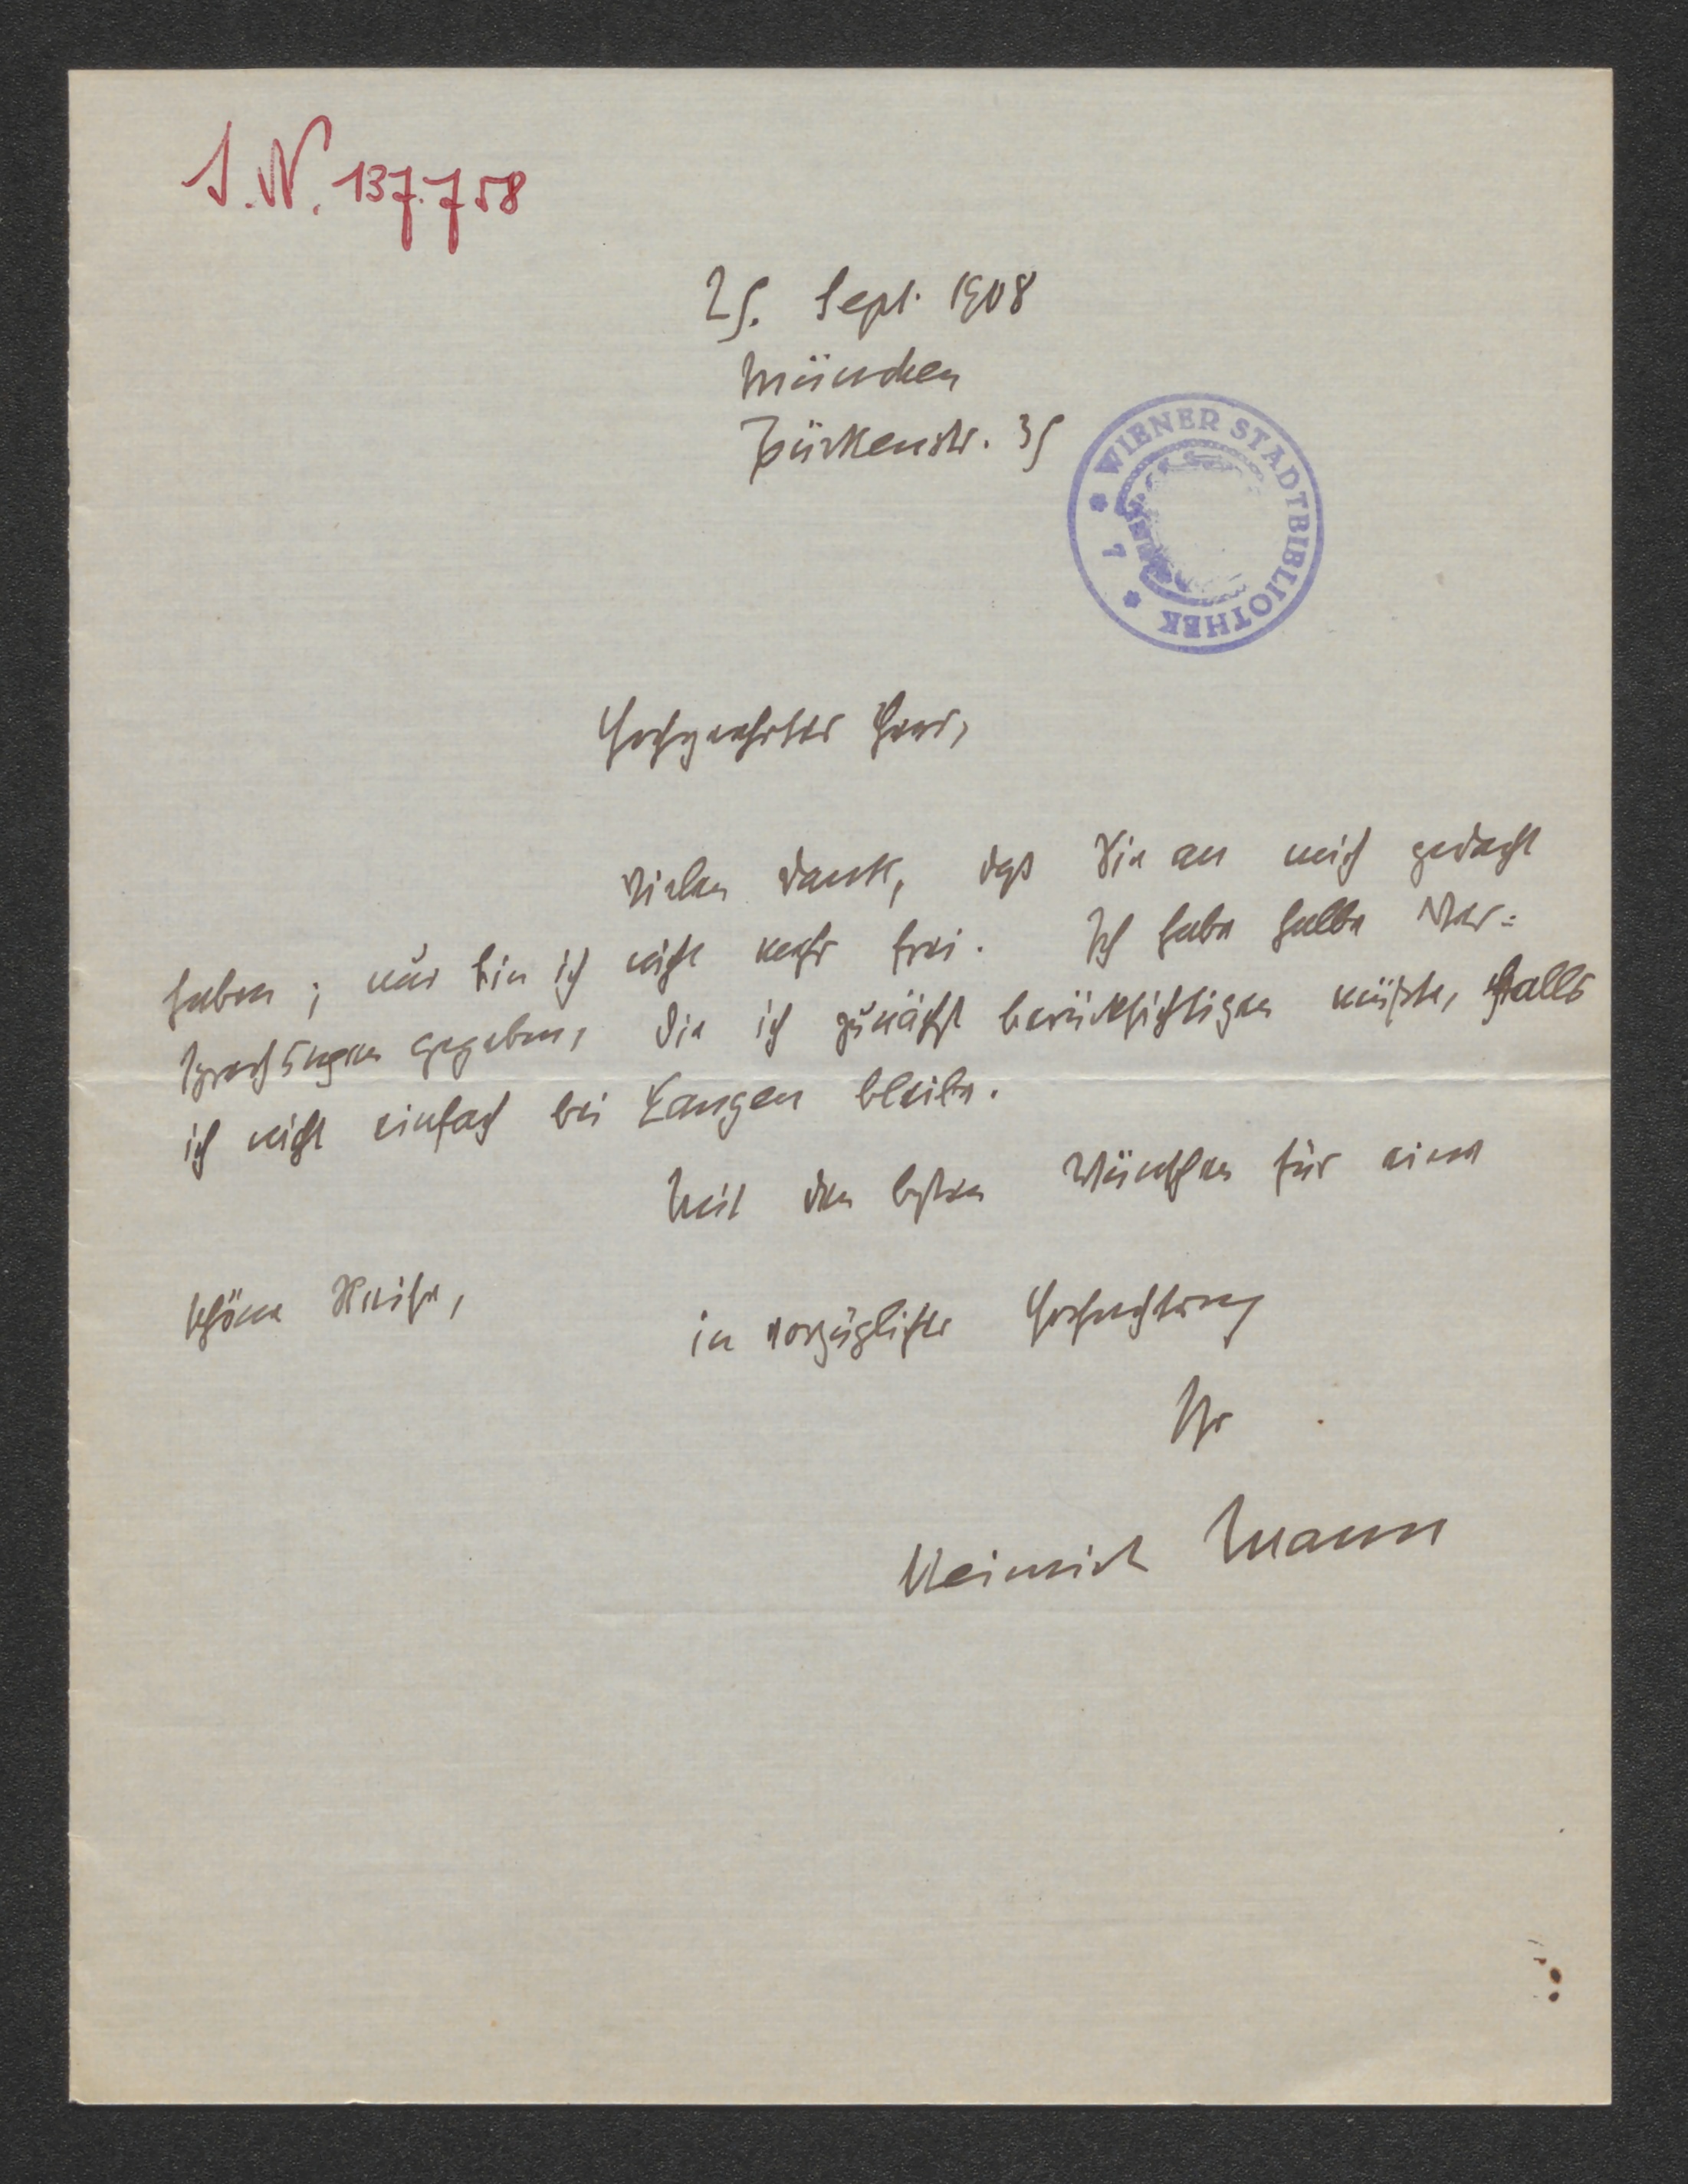 I.N. 137.758
25. Sept. 1908
München
Türkenstr. 35
WIENER STADTBIBLIOTHEK
7
Hochgeehrter Herr,
vielen Dank, daß Sie an mich gedacht
haben; nur bin ich nicht mehr frei. Ich habe halbe Ver=
sprechungen gegeben, die ich zunächst berücksichtigen müßte, falls
ich nicht einfach bei Langen bleibe.
Mit den besten Wünschen für eine
schöne Reise,
in vorzüglicher Hochachtung
Ihr
Heinrich Mann